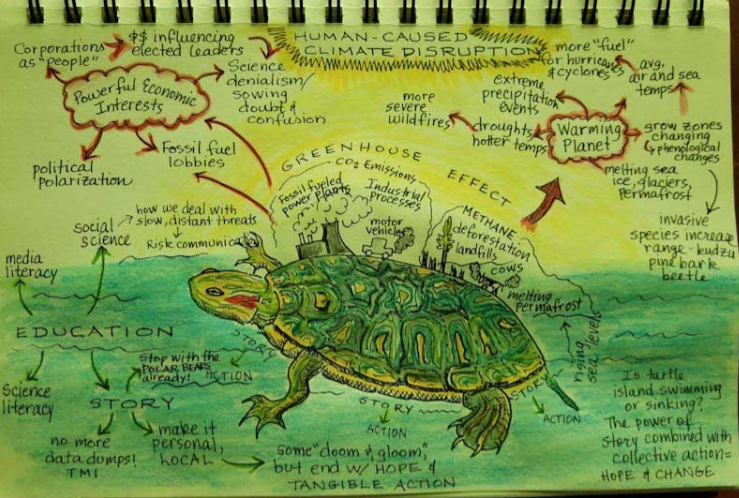 HUMAN-CAUSED
CLIMATE DISRUPTION
Corporations
as "people"
$$ influencing
elected leaders
Powerful Economic
Interests
Science
denialism/
sowing
doubt &
confusion
political
polarization
Fossil fuel
lobbies
more "fuel"
for hurricanes
& cyclones
avg.
air and sea
temps
extreme
precipitation
events
more
severe
wildfires
droughts
hotter temps
Warming
Planet
grow zones
changing
phenological
changes
melting sea
ice, glaciers,
permafrost
invasive
species increase
range - kudzu
pine bark
beetle
GREENHOUSE EFFECT
CO2 Emissions
Fossil fueled
power plants
Industrial
processes
motor
vehicles
METHANE
deforestation
landfills
cows
melting
permafrost
rising
sea levels
social
science
how we deal with
slow, distant threats
Risk communication
media
literacy
EDUCATION
Science
literacy
STORY
Stop with the
POLAR BEARS
already!
STORY
ACTION
no more
data dumps!
TMI
make it
personal,
LOCAL
some "doom & gloom",
but end w/ HOPE &
TANGIBLE ACTION
STORY
ACTION
STORY
ACTION
Is turtle
island swimming
or sinking?
The power of
story combined with
collective action=
HOPE & CHANGE